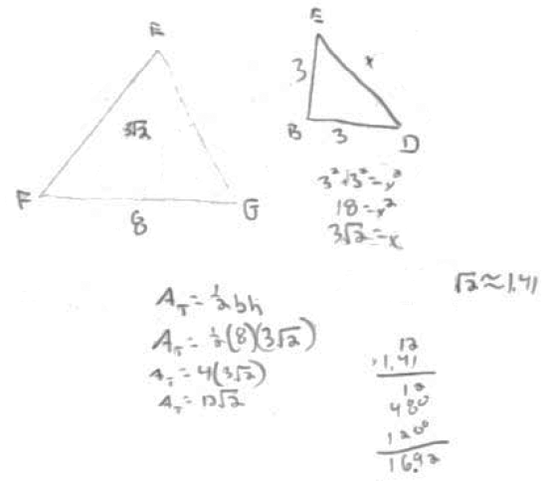 E
3√2
F
G
8
E
3
x
B
3
D
3²+3²=x²
18=x²
3√2=x
√2≈1.41
A_T=½bh
A_T=½(8)(3√2)
A_T=4(3√2)
A_T=12√2
12
×1.41
12
480
1200
16.92